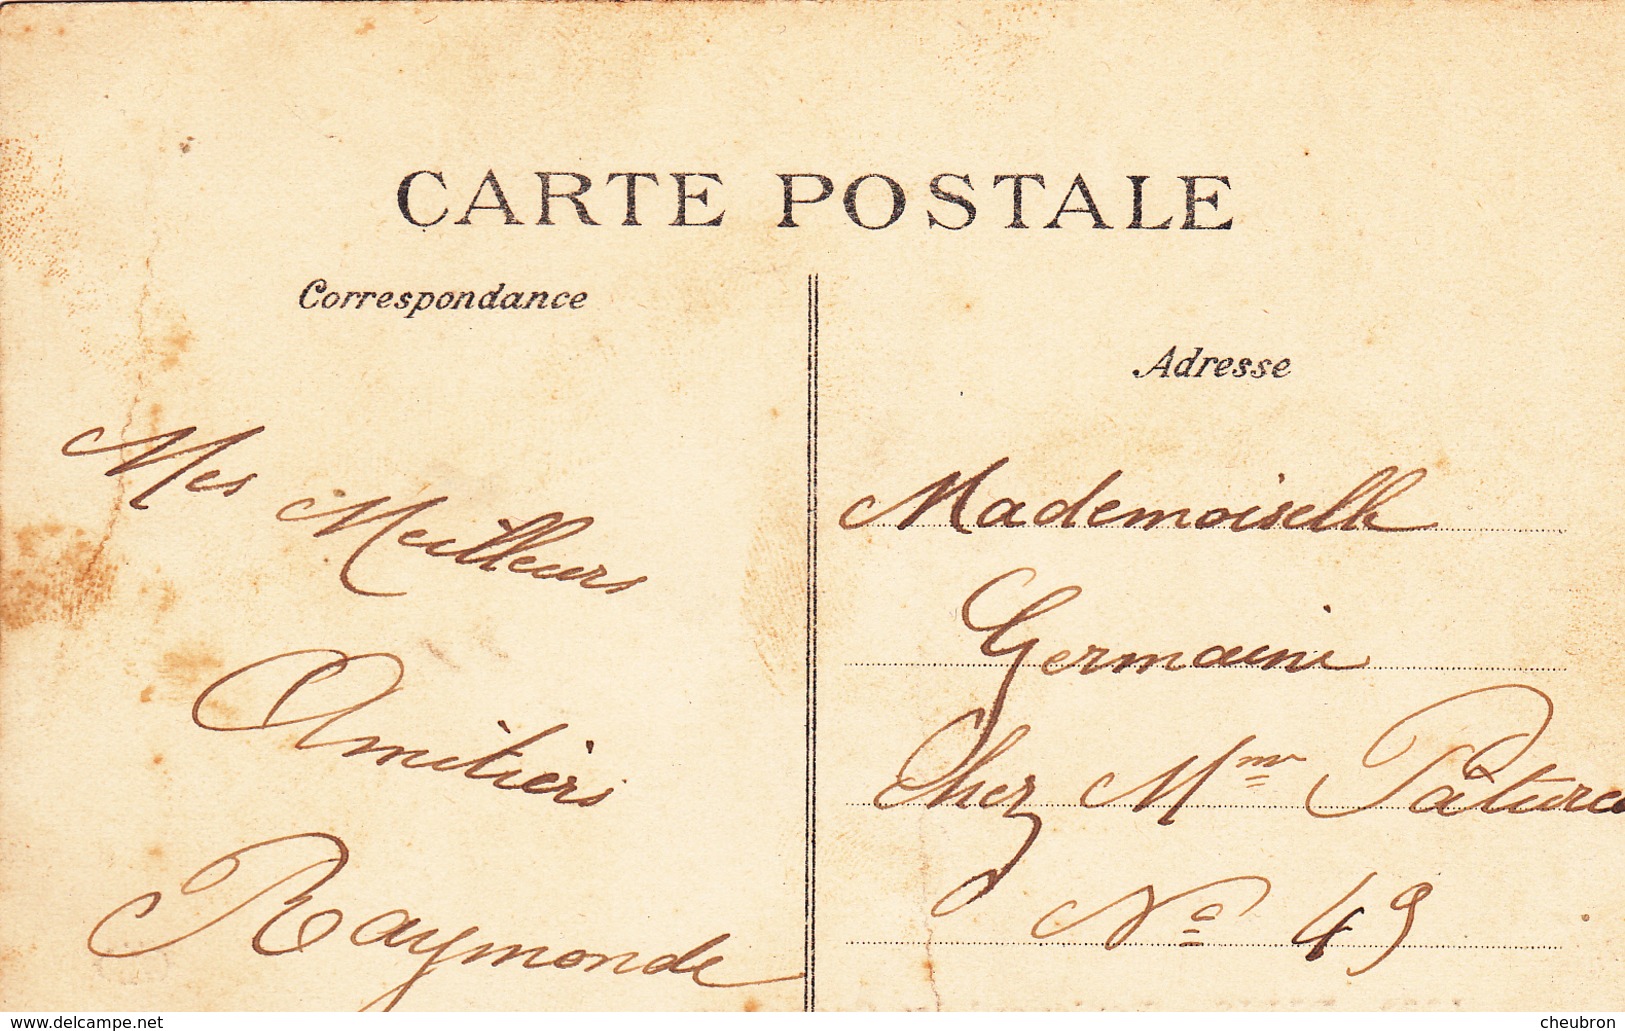 CARTE POSTALE
Correspondance
Adresse
Mes
Meilleurs
Amitiers
Raymonde
Mademoiselle
Germaine
Chez Mme
No 49
www.delcampe.net
cheubron